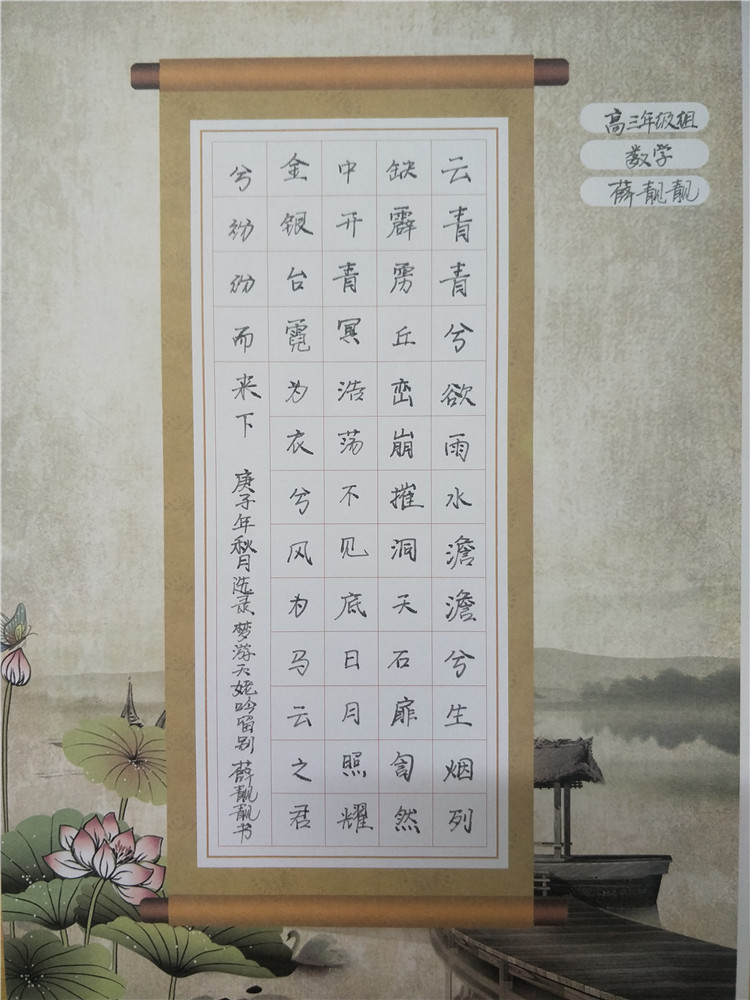 高三年级组
数学
薛靓靓
云青青兮欲雨水澹澹兮生烟列
缺霹雳丘峦崩摧洞天石扉訇然
中开青冥浩荡不见底日月照耀
金银台霓为衣兮风为马云之君
兮纷纷而来下 庚子年秋月选录梦游天姥吟留别 薛靓靓书